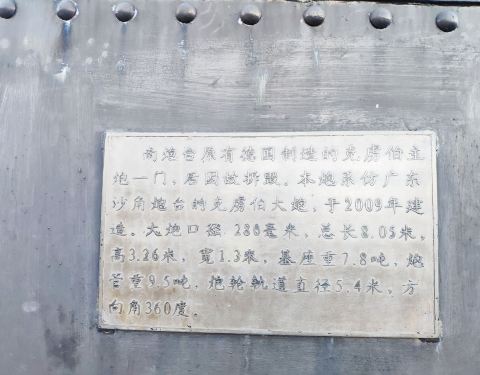 南炮台原有德国制造的克虏伯主
炮一门，后因故拆毁。本炮系仿广东
沙角炮台的克虏伯大炮，于2009年建
造。大炮口径 280毫米，总长8.05米，
高3.26米，宽1.3米，基座重7.8吨，炮
管重9.5吨，炮轮轨道直径5.4米，方
向角360度。